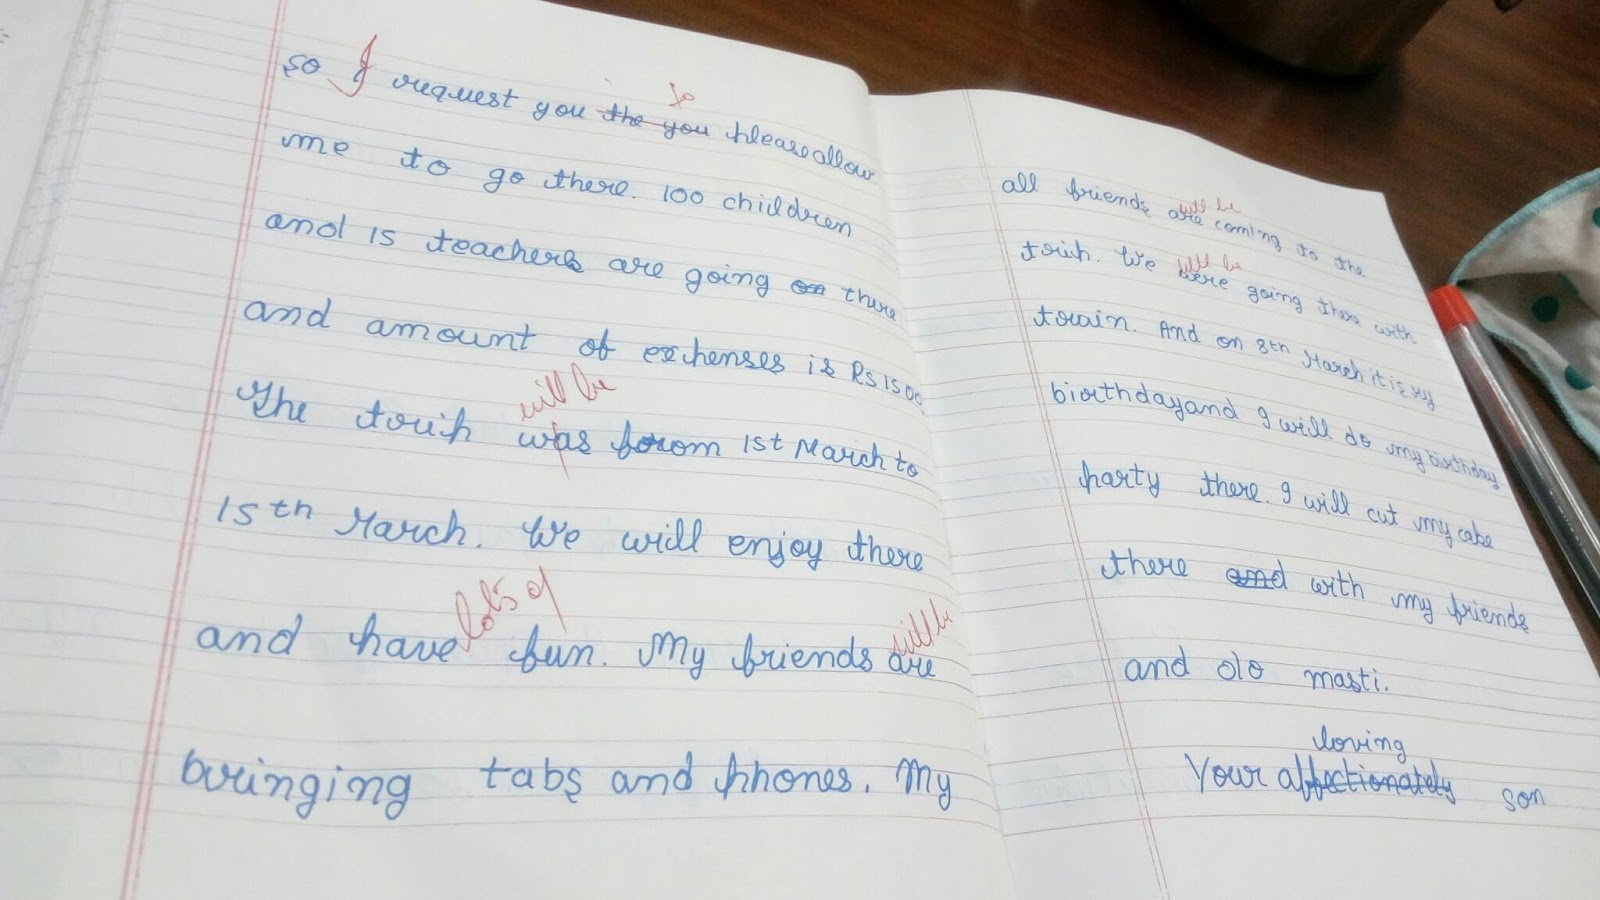 so I request you the you to please allow
me to go there. 100 children
and 15 teachers are going on there
and amount of expenses is Rs 1500
The trip will be was from 1st March to
15th March. We will enjoy there
and have lots of fun. My friends will be are
bringing tabs and phones. My
all friends will be are coming to the
trip. We will be were going there with
train. And on 8th March it is my
birthday and I will do my birthday
party there. I will cut my cake
there and with my friends
and do masti.
loving
Your affectionately son